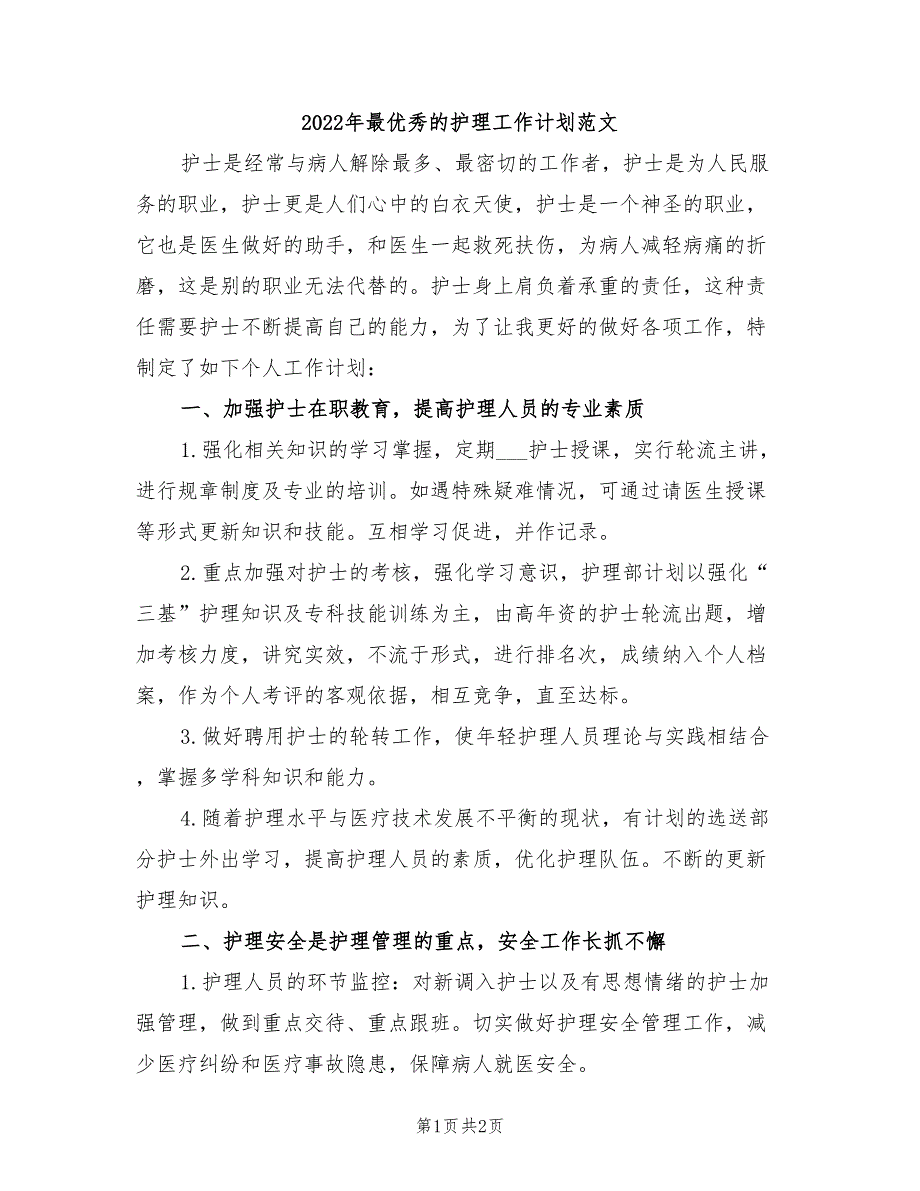 2022年最优秀的护理工作计划范文
护士是经常与病人解除最多、最密切的工作者，护士是为人民服
务的职业，护士更是人们心中的白衣天使，护士是一个神圣的职业，
它也是医生做好的助手，和医生一起救死扶伤，为病人减轻病痛的折
磨，这是别的职业无法代替的。护士身上肩负着承重的责任，这种责
任需要护士不断提高自己的能力，为了让我更好的做好各项工作，特
制定了如下个人工作计划：
一、加强护士在职教育，提高护理人员的专业素质
1.强化相关知识的学习掌握，定期___护士授课，实行轮流主讲，
进行规章制度及专业的培训。如遇特殊疑难情况，可通过请医生授课
等形式更新知识和技能。互相学习促进，并作记录。
2.重点加强对护士的考核，强化学习意识，护理部计划以强化“
三基”护理知识及专科技能训练为主，由高年资的护士轮流出题，增
加考核力度，讲究实效，不流于形式，进行排名次，成绩纳入个人档
案，作为个人考评的客观依据，相互竞争，直至达标。
3.做好聘用护士的轮转工作，使年轻护理人员理论与实践相结合
，掌握多学科知识和能力。
4.随着护理水平与医疗技术发展不平衡的现状，有计划的选送部
分护士外出学习，提高护理人员的素质，优化护理队伍。不断的更新
护理知识。
二、护理安全是护理管理的重点，安全工作长抓不懈
1.护理人员的环节监控：对新调入护士以及有思想情绪的护士加
强管理，做到重点交待、重点跟班。切实做好护理安全管理工作，减
少医疗纠纷和医疗事故隐患，保障病人就医安全。
第1页共2页